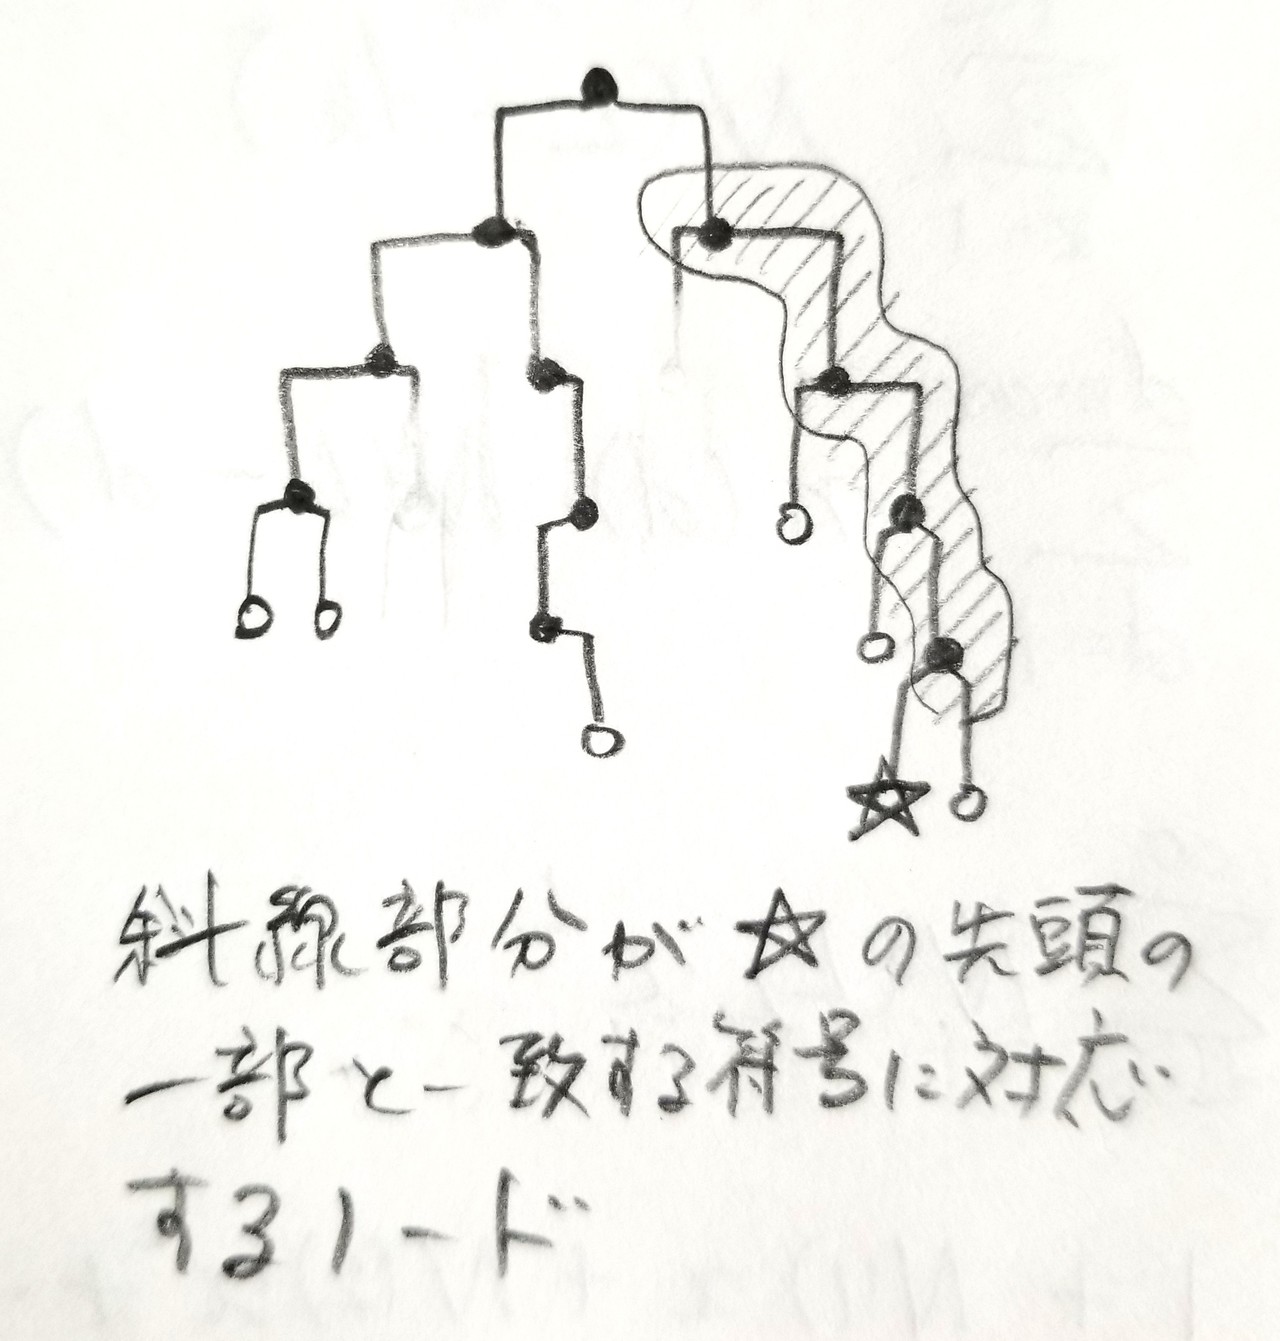 斜線部分が☆の先頭の
一部と一致する符号に対応
するノード